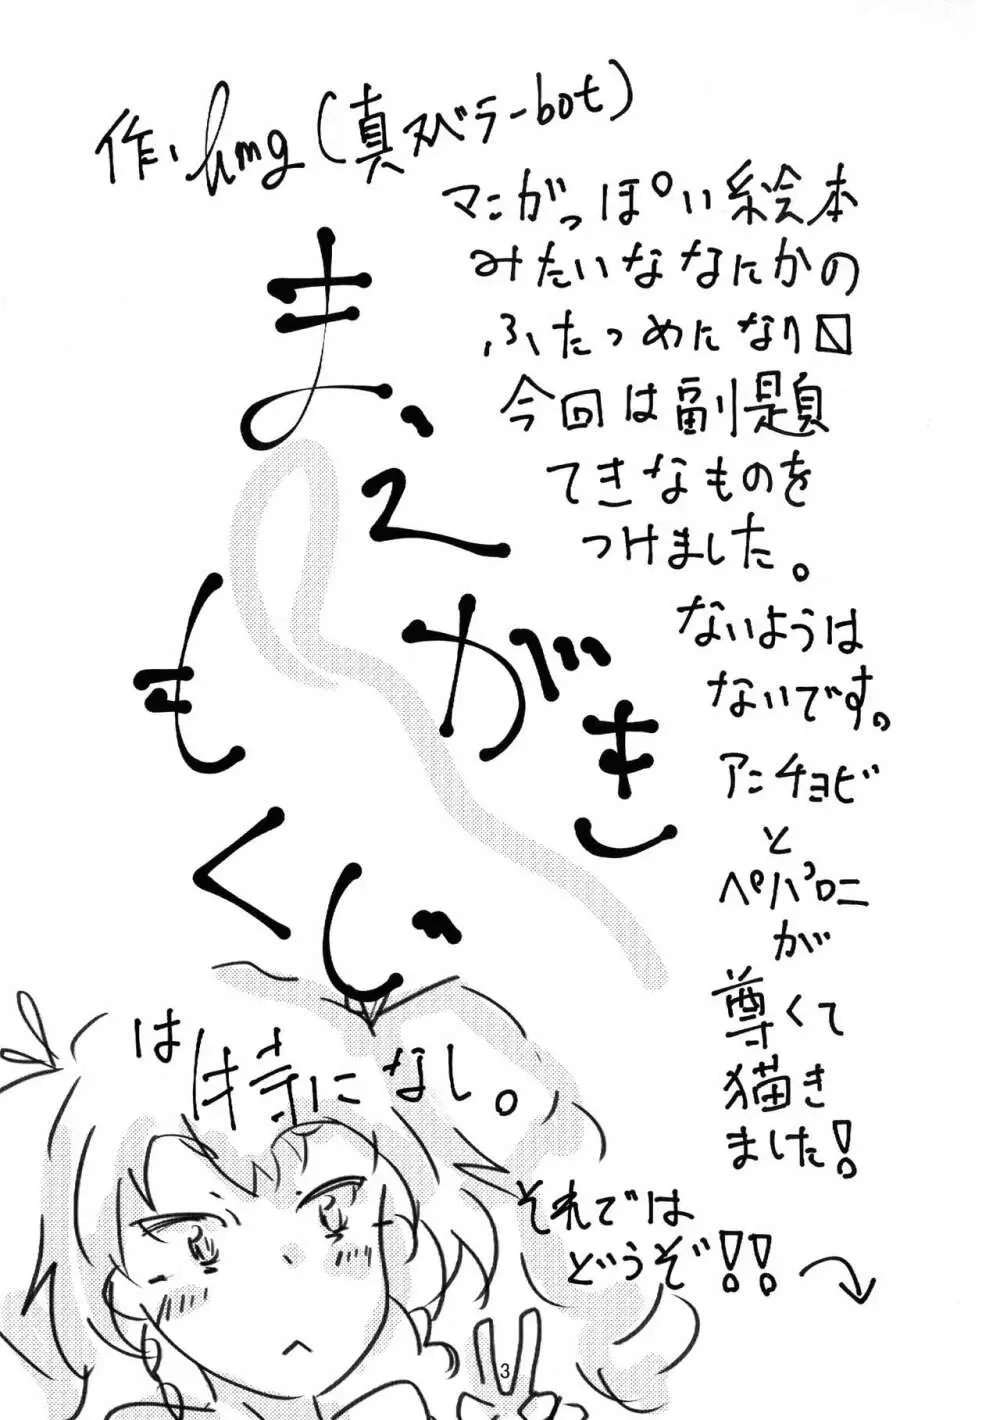 作・hmg(真スベラーbot)
マンガっぽい絵本
みたいななにかの
ふたつめになり〼
今回は副題
てきなものを
つけました。
ないようは
ないです。
アンチョビ
と
ペパロニ
が
尊くて
描き
ました!
それでは
どうぞ!!
ま、
え
がき
もくじ
は特になし。
3